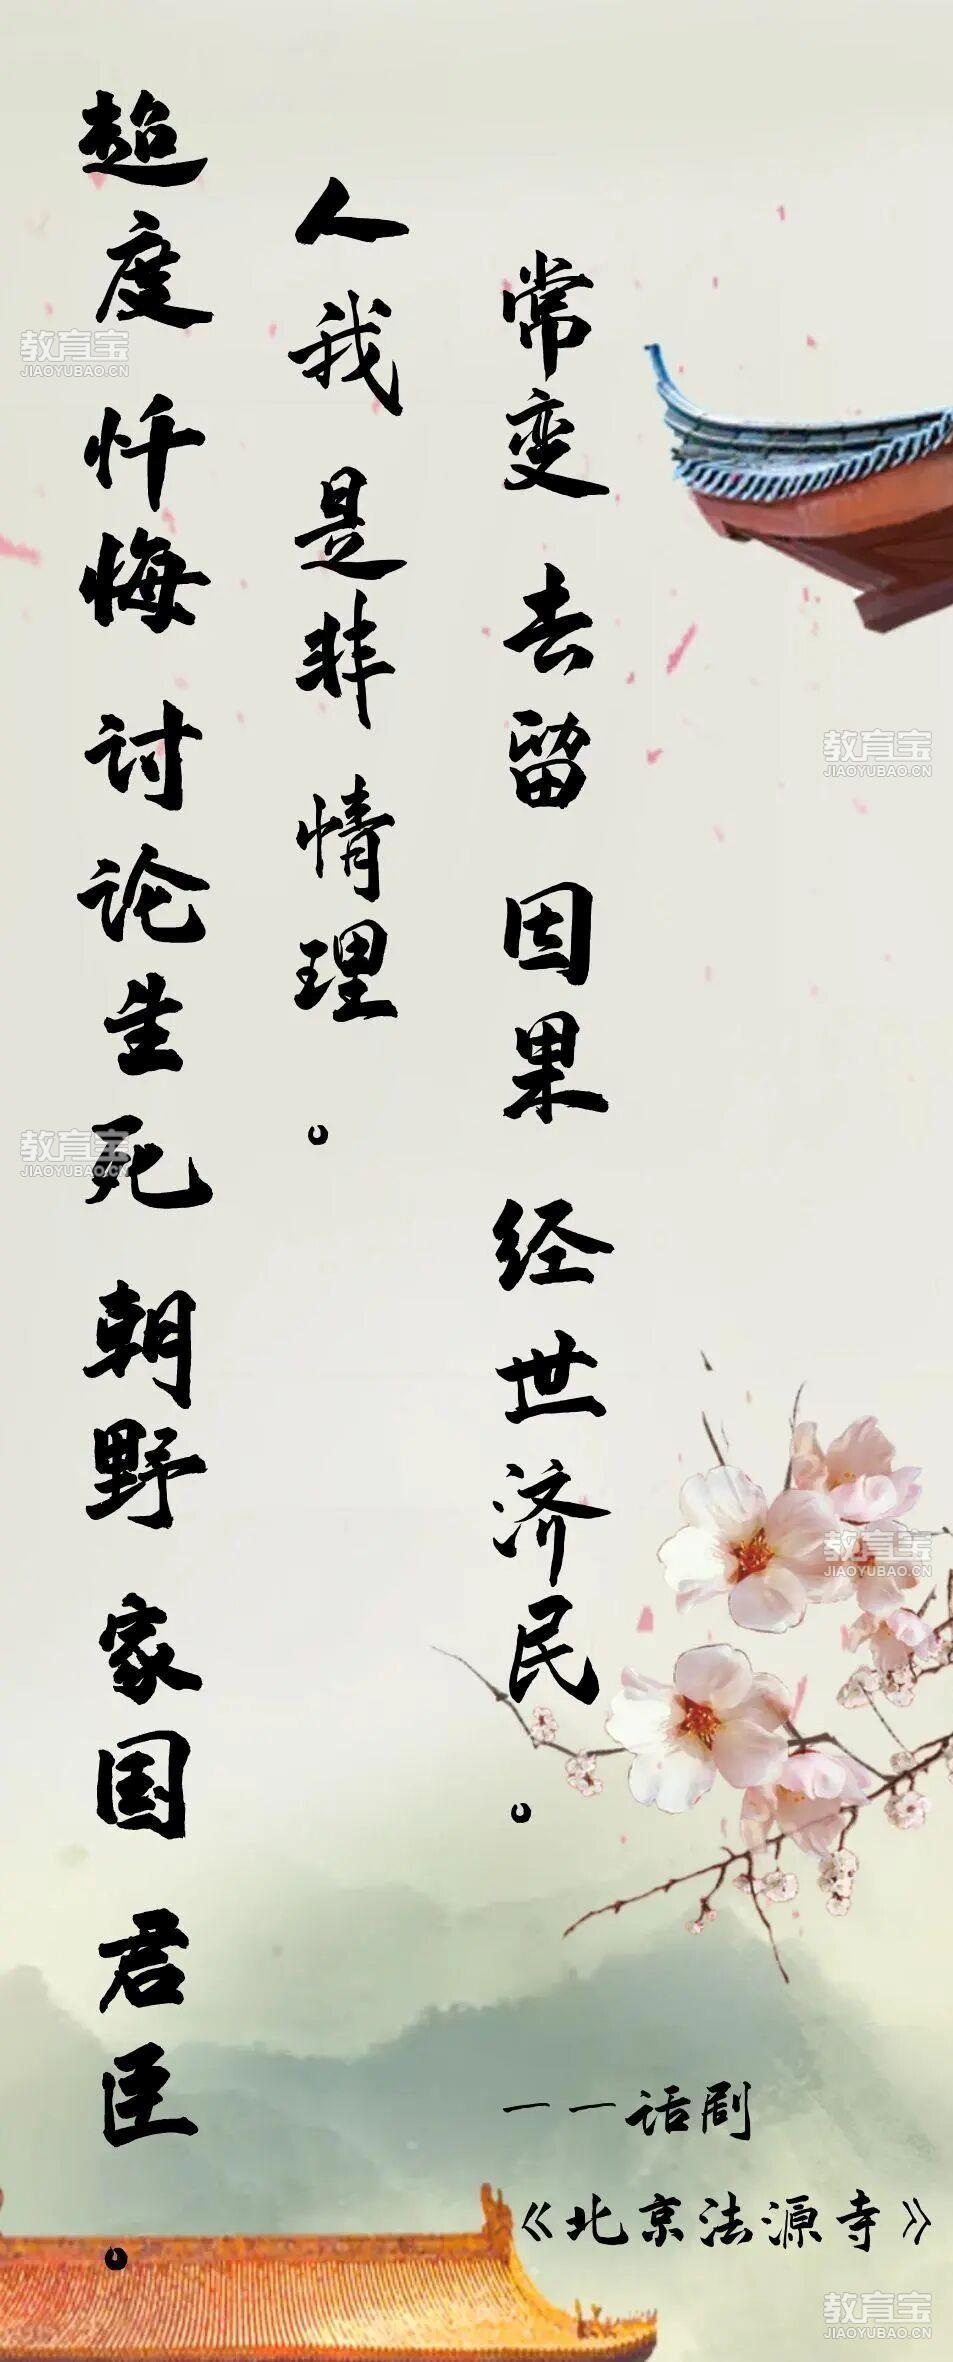 超度 忏悔 讨论生死 朝野 家国 君臣。
人我 是非 情理。
常变 去留 因果 经世济民。
——话剧
《北京法源寺》
教育宝
JIAOYUBAO.CN
教育宝
JIAOYUBAO.CN
教育宝
JIAOYUBAO.CN
教育宝
JIAOYUBAO.CN
教育宝
JIAOYUBAO.CN